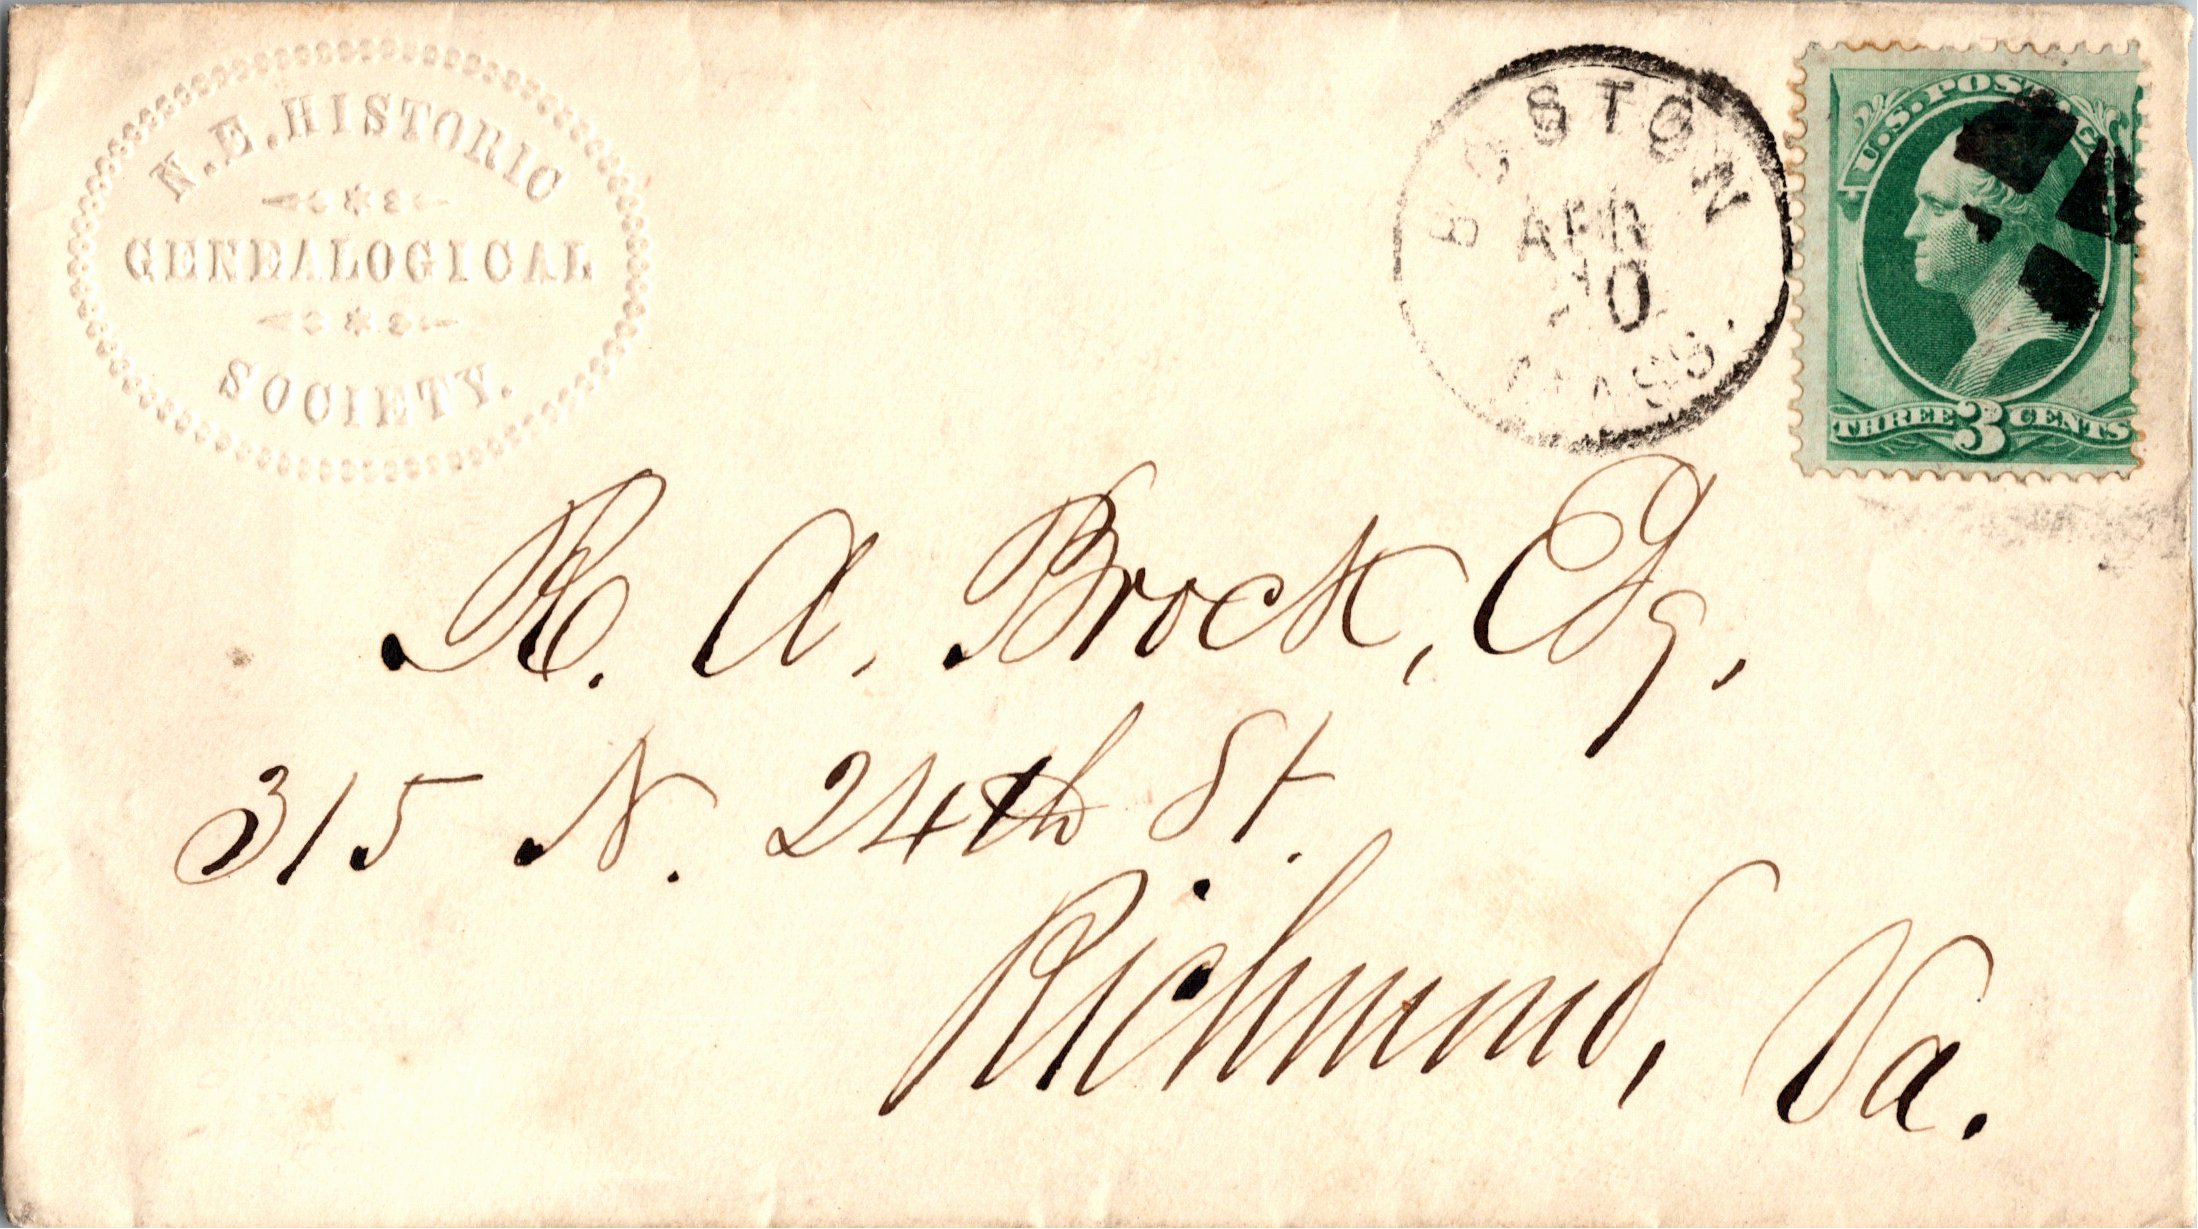 N. E. HISTORIC
GENEALOGICAL
SOCIETY.
BOSTON
APR
MASS.
U.S. POSTAGE
THREE 3 CENTS
R. A. Brock, Esq,
315 N. 24th St.
Richmond, Va.